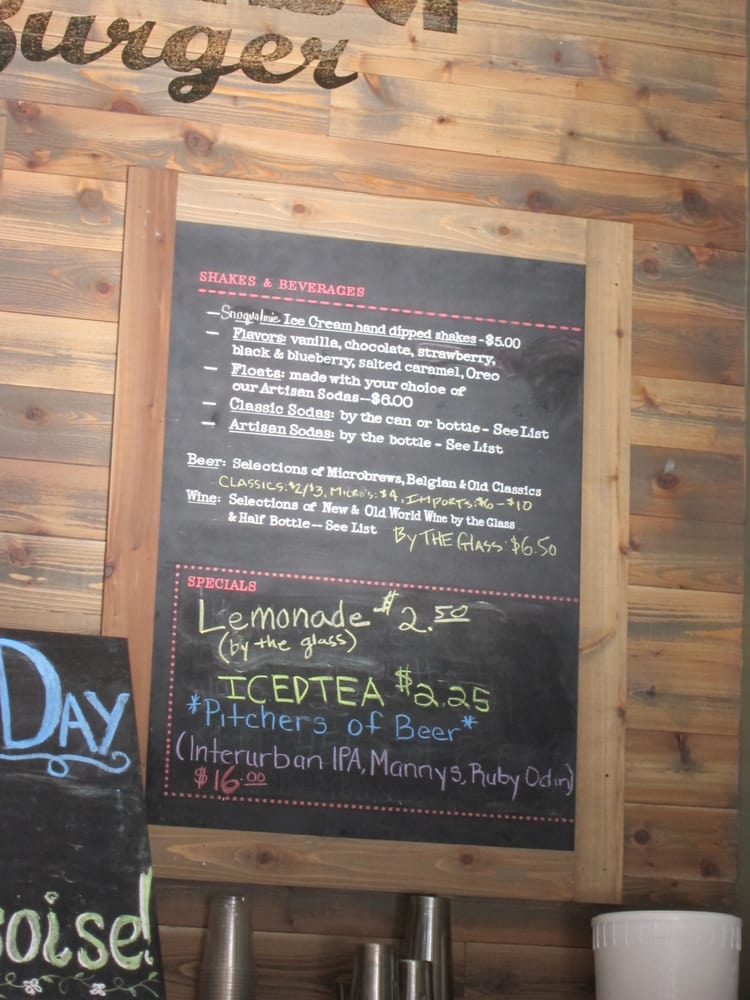 Burger
SHAKES & BEVERAGES
– Snoqualmie Ice Cream hand dipped shakes - $5.00
– Flavors: vanilla, chocolate, strawberry,
black & blueberry, salted caramel, Oreo
– Floats: made with your choice of
our Artisan Sodas--$6.00
– Classic Sodas: by the can or bottle - See List
– Artisan Sodas: by the bottle - See List
Beer: Selections of Microbrews, Belgian & Old Classics
CLASSICS: $2/$3, MICRO'S: $4, IMPORTS: $6 - $10
Wine: Selections of New & Old World Wine by the Glass
& Half Bottle -- See List
By THE Glass: $6.50
SPECIALS
Lemonade $2.50
(by the glass)
ICED TEA $2.25
*Pitchers of Beer*
(Interurban IPA, Mannys, Ruby Odin)
$16.00
DAY
oise!